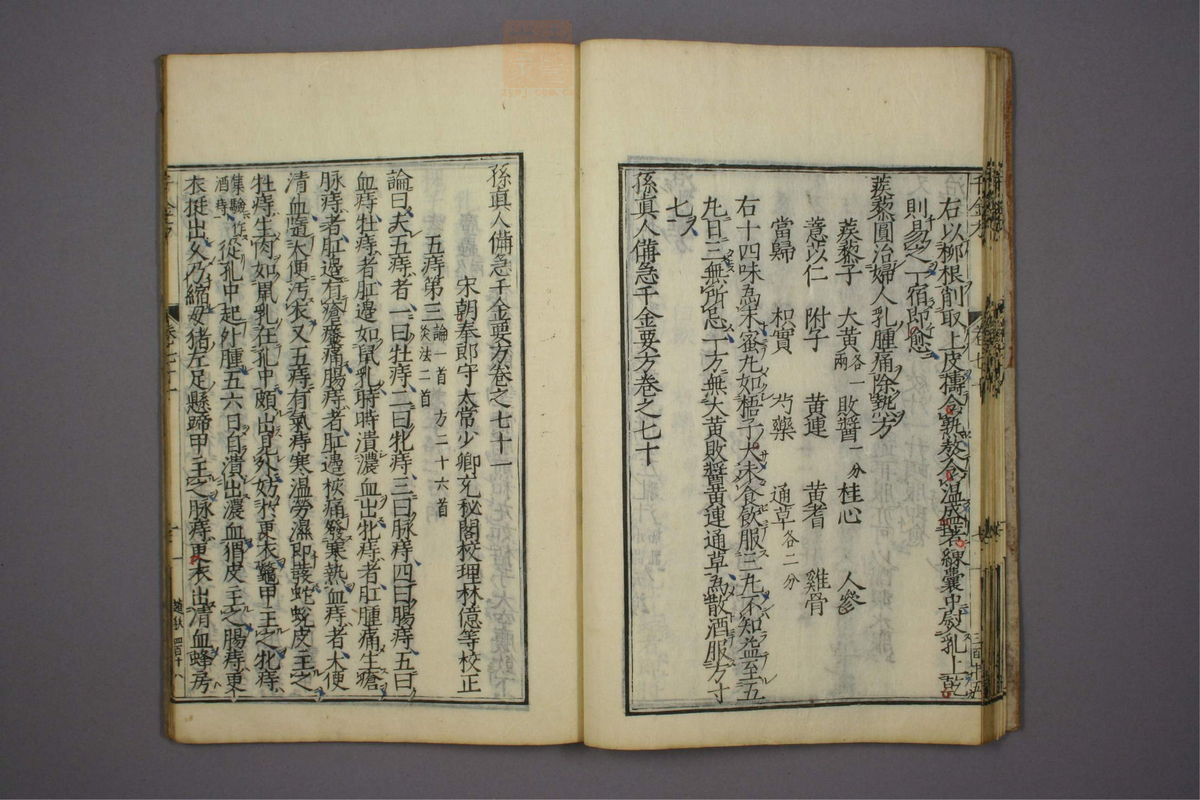 右以柳根削取上皮擣令熟熬令溫盛著練囊中熨乳上乾
則易之一宿即愈
蒺藜圓治婦人乳腫痛除熱方
蒺藜子 大黃各一兩 敗醬一分 桂心 人參
薏苡仁 附子 黃連 黃耆 雞骨
當歸 枳實 芍藥 通草各二分
右十四味為末蜜丸如梧子大未食飲服三丸不知益至五
丸日三無所忌一方無大黃敗醬黃連通草為散酒服方寸
七
孫真人備急千金要方卷之七十
孫真人備急千金要方卷之七十一
宋朝奉郎守太常少卿充秘閣校理林億等校正
五痔第三 論一首 方二十六首 灸法二首
論曰夫五痔者一曰牡痔二曰牝痔三曰脉痔四曰腸痔五曰
血痔牡痔者肛邊如鼠乳時時潰濃血出牝痔者肛腫痛生瘡
脉痔者肛邊有瘡癢痛腸痔者肛邊核痛發寒熱血痔者大便
清血隨大便汚衣又五痔有氣痔寒溫勞濕即發蛇蛻皮主之
牡痔生肉如鼠乳在孔中頗出見外妨於更衣鱉甲主之牝痔
集驗作酒痔從孔中起外腫五六日自潰出濃血猬皮主之腸痔更
衣挺出久乃縮母猪左足懸蹄甲主之脉痔更衣出清血蜂房